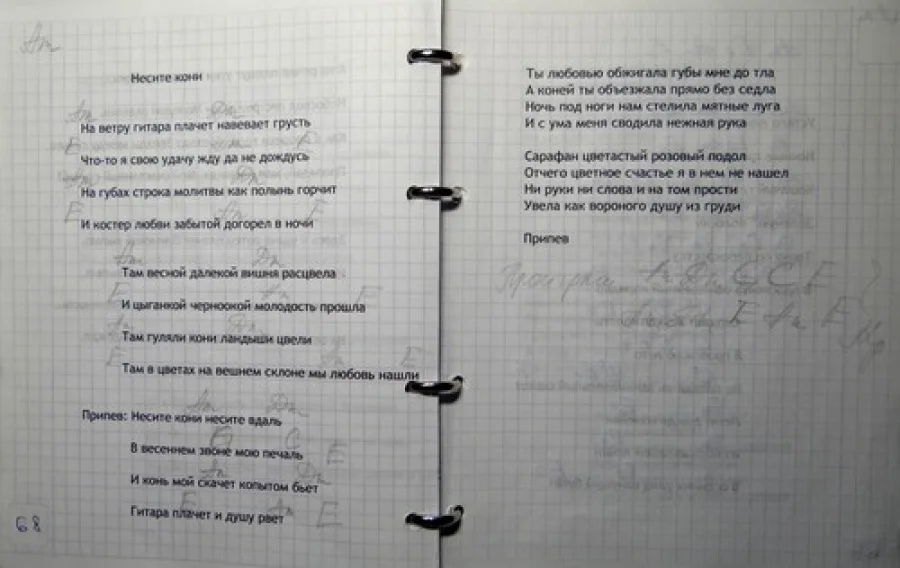 Am
Несите кони
Am Dm
На ветру гитара плачет навевает грусть
E
Что-то я свою удачу жду да не дождусь
На губах строка молитвы как полынь горчит
E Am E
И костер любви забытой догорел в ночи
Am Dm
Там весной далекой вишня расцвела
E Am E
И цыганкой черноокой молодость прошла
Am Dm
Там гуляли кони ландыши цвели
E Am E
Там в цветах на вешнем склоне мы любовь нашли
Am Dm
Припев: Несите кони несите вдаль
G C E
В весеннем звоне мою печаль
Am Dm
И конь мой скачет копытом бьет
E Am E
Гитара плачет и душу рвет
68
Ты любовью обжигала губы мне до тла
А коней ты объезжала прямо без седла
Ночь под ноги нам стелила мятные луга
И с ума меня сводила нежная рука
Сарафан цветастый розовый подол
Отчего цветное счастье я в нем не нашел
Ни руки ни слова и на том прости
Увела как вороного душу из груди
Припев
Проигрыш G C E
E Am E